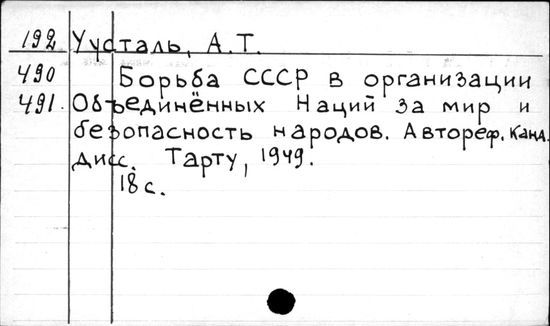 192 Уусталь, А.Т.
490 Борьба СССР в организации
491. Объединённых Наций за мир и
безопасность народов. Автореф. канд.
дисс. Тарту, 1949.
18 с.